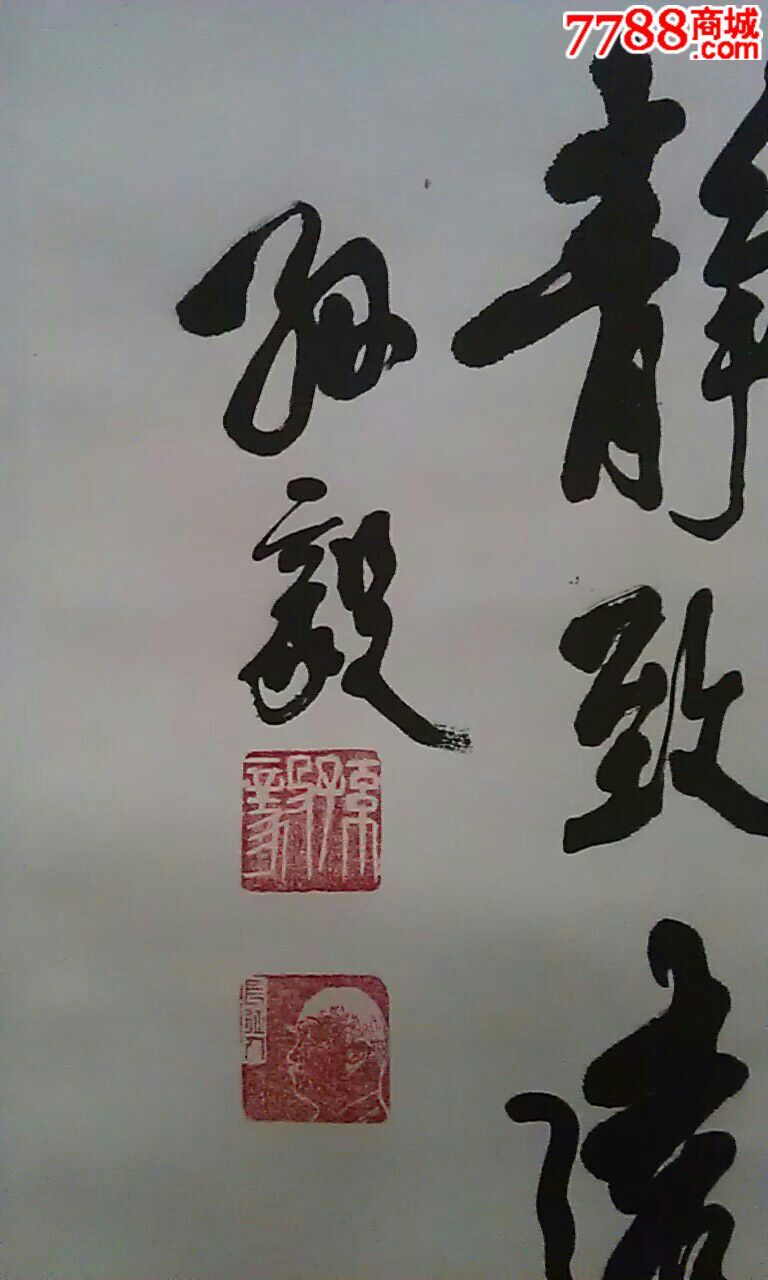 7788商城
.com
静致远
孙毅
孙毅